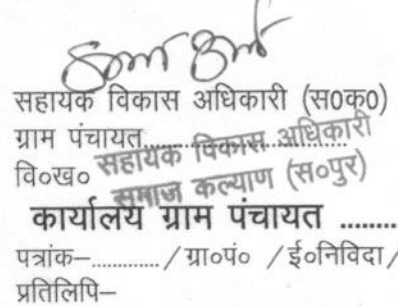 सहायक विकास अधिकारी (स0क0)
ग्राम पंचायत..............................
वि०ख०
सहायक विकास अधिकारी
समाज कल्याण (स०पुर)
कार्यालय ग्राम पंचायत ........
पत्रांक–............ / ग्रा०पं० / ई०निविदा /
प्रतिलिपि–